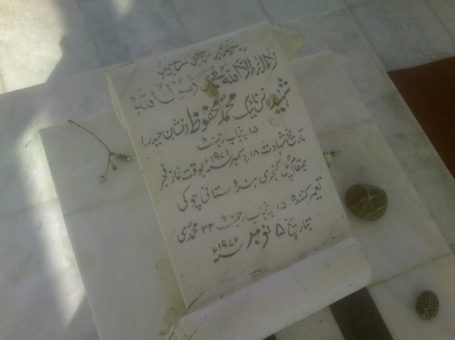 لا الہ الا اللہ محمد رسول اللہ
شہید لانس نائیک محمد محفوظ (نشان حیدر)
۱۵ پنجاب رجمنٹ
تاریخ شہادت ۱۸ دسمبر ۱۹۷۱ء بوقت نماز فجر
بمقام پل کنجری ہندوستانی چوکی
تعمیر کنندہ ۱۵ پنجاب رجمنٹ ۴۳ محمدی
بتاریخ ۵ نومبر ۱۹۷۲ء